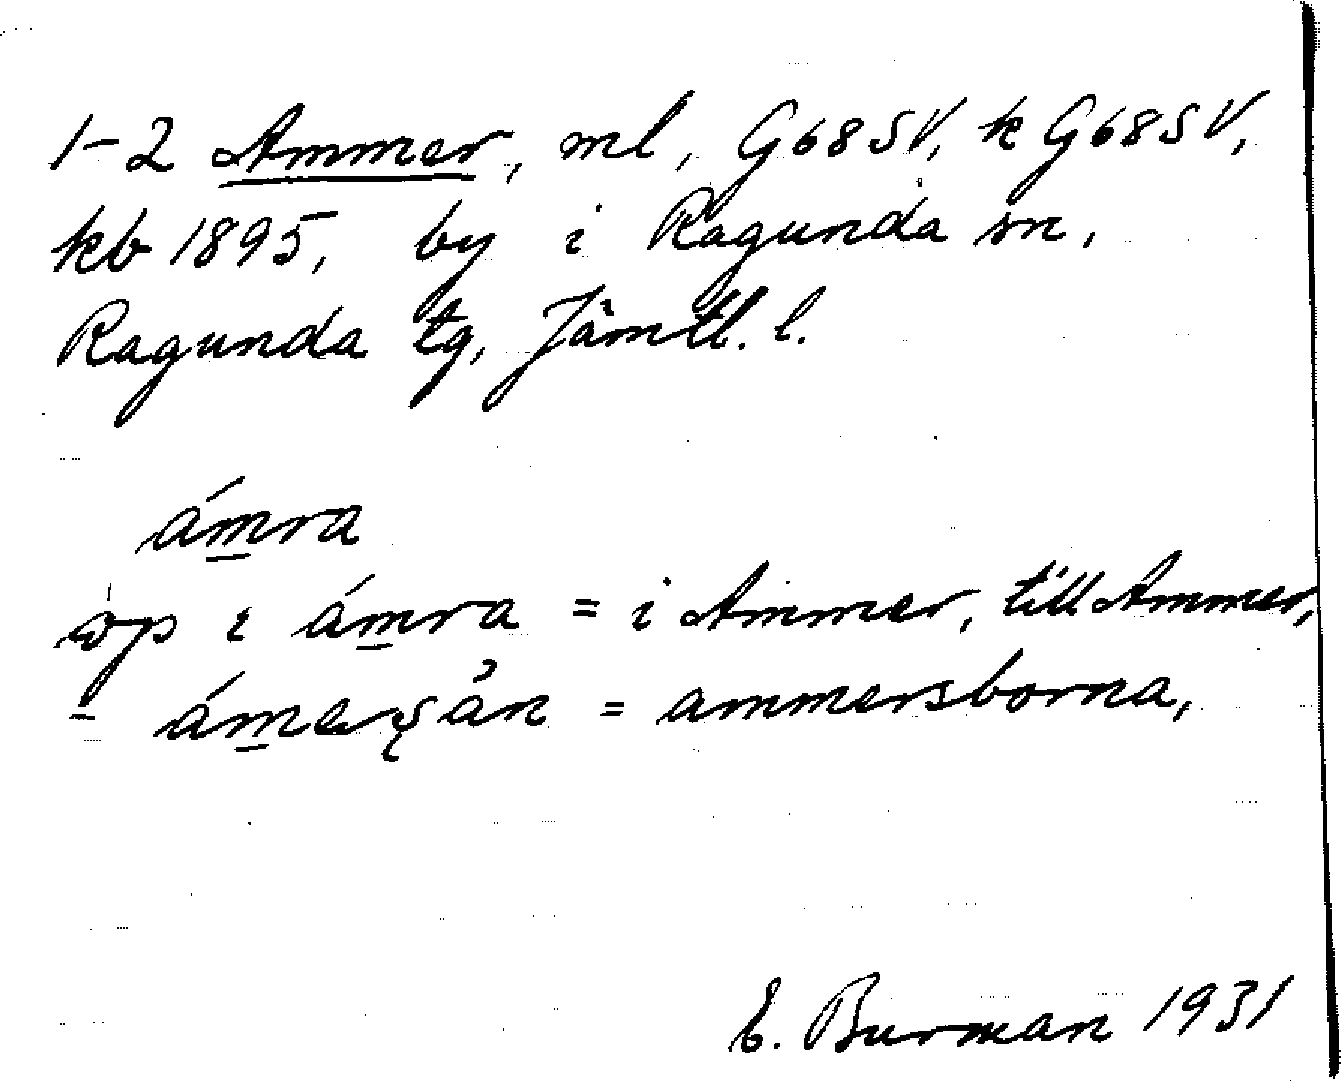 1-2 Ammer, ml, G68SV, k G68SV,
kb 1895, by i Ragunda sn,
Ragunda tg, Jämtl. l.
ámra
i ámra = i Ammer, till Ammer,
- = ammersborna,
E. Burman 1931